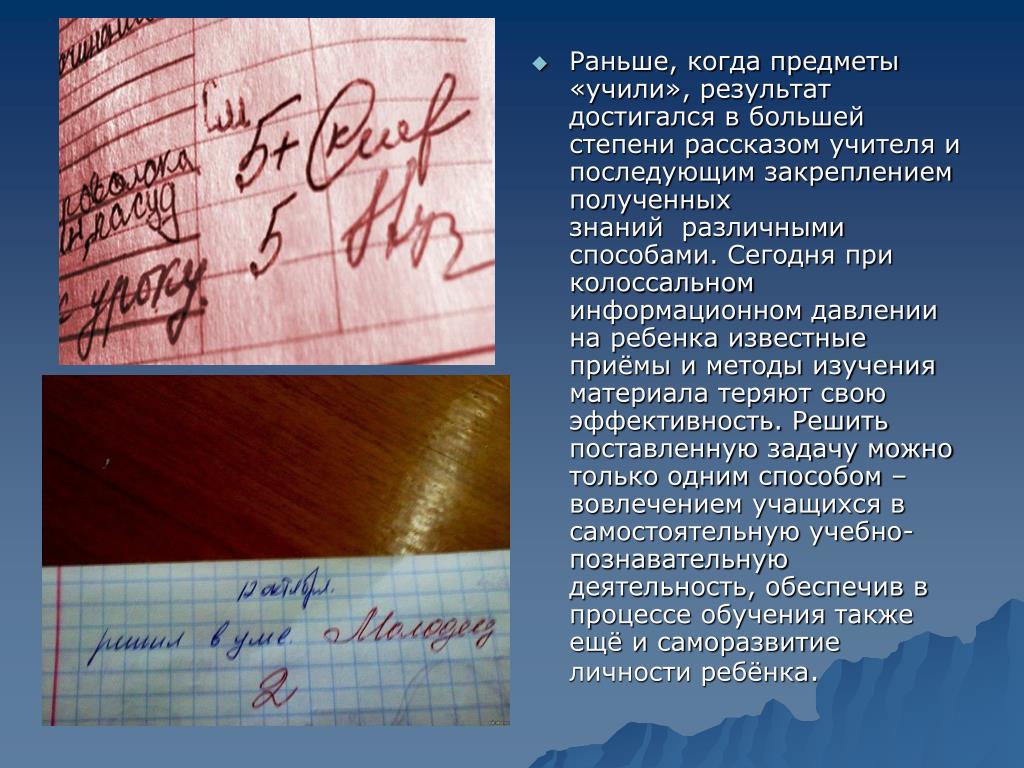 См 5+
5
к уроку.
12 октября.
решил в уме. Молодец
2
Раньше, когда предметы
«учили», результат
достигался в большей
степени рассказом учителя и
последующим закреплением
полученных
знаний различными
способами. Сегодня при
колоссальном
информационном давлении
на ребенка известные
приёмы и методы изучения
материала теряют свою
эффективность. Решить
поставленную задачу можно
только одним способом –
вовлечением учащихся в
самостоятельную учебно-
познавательную
деятельность, обеспечив в
процессе обучения также
ещё и саморазвитие
личности ребёнка.